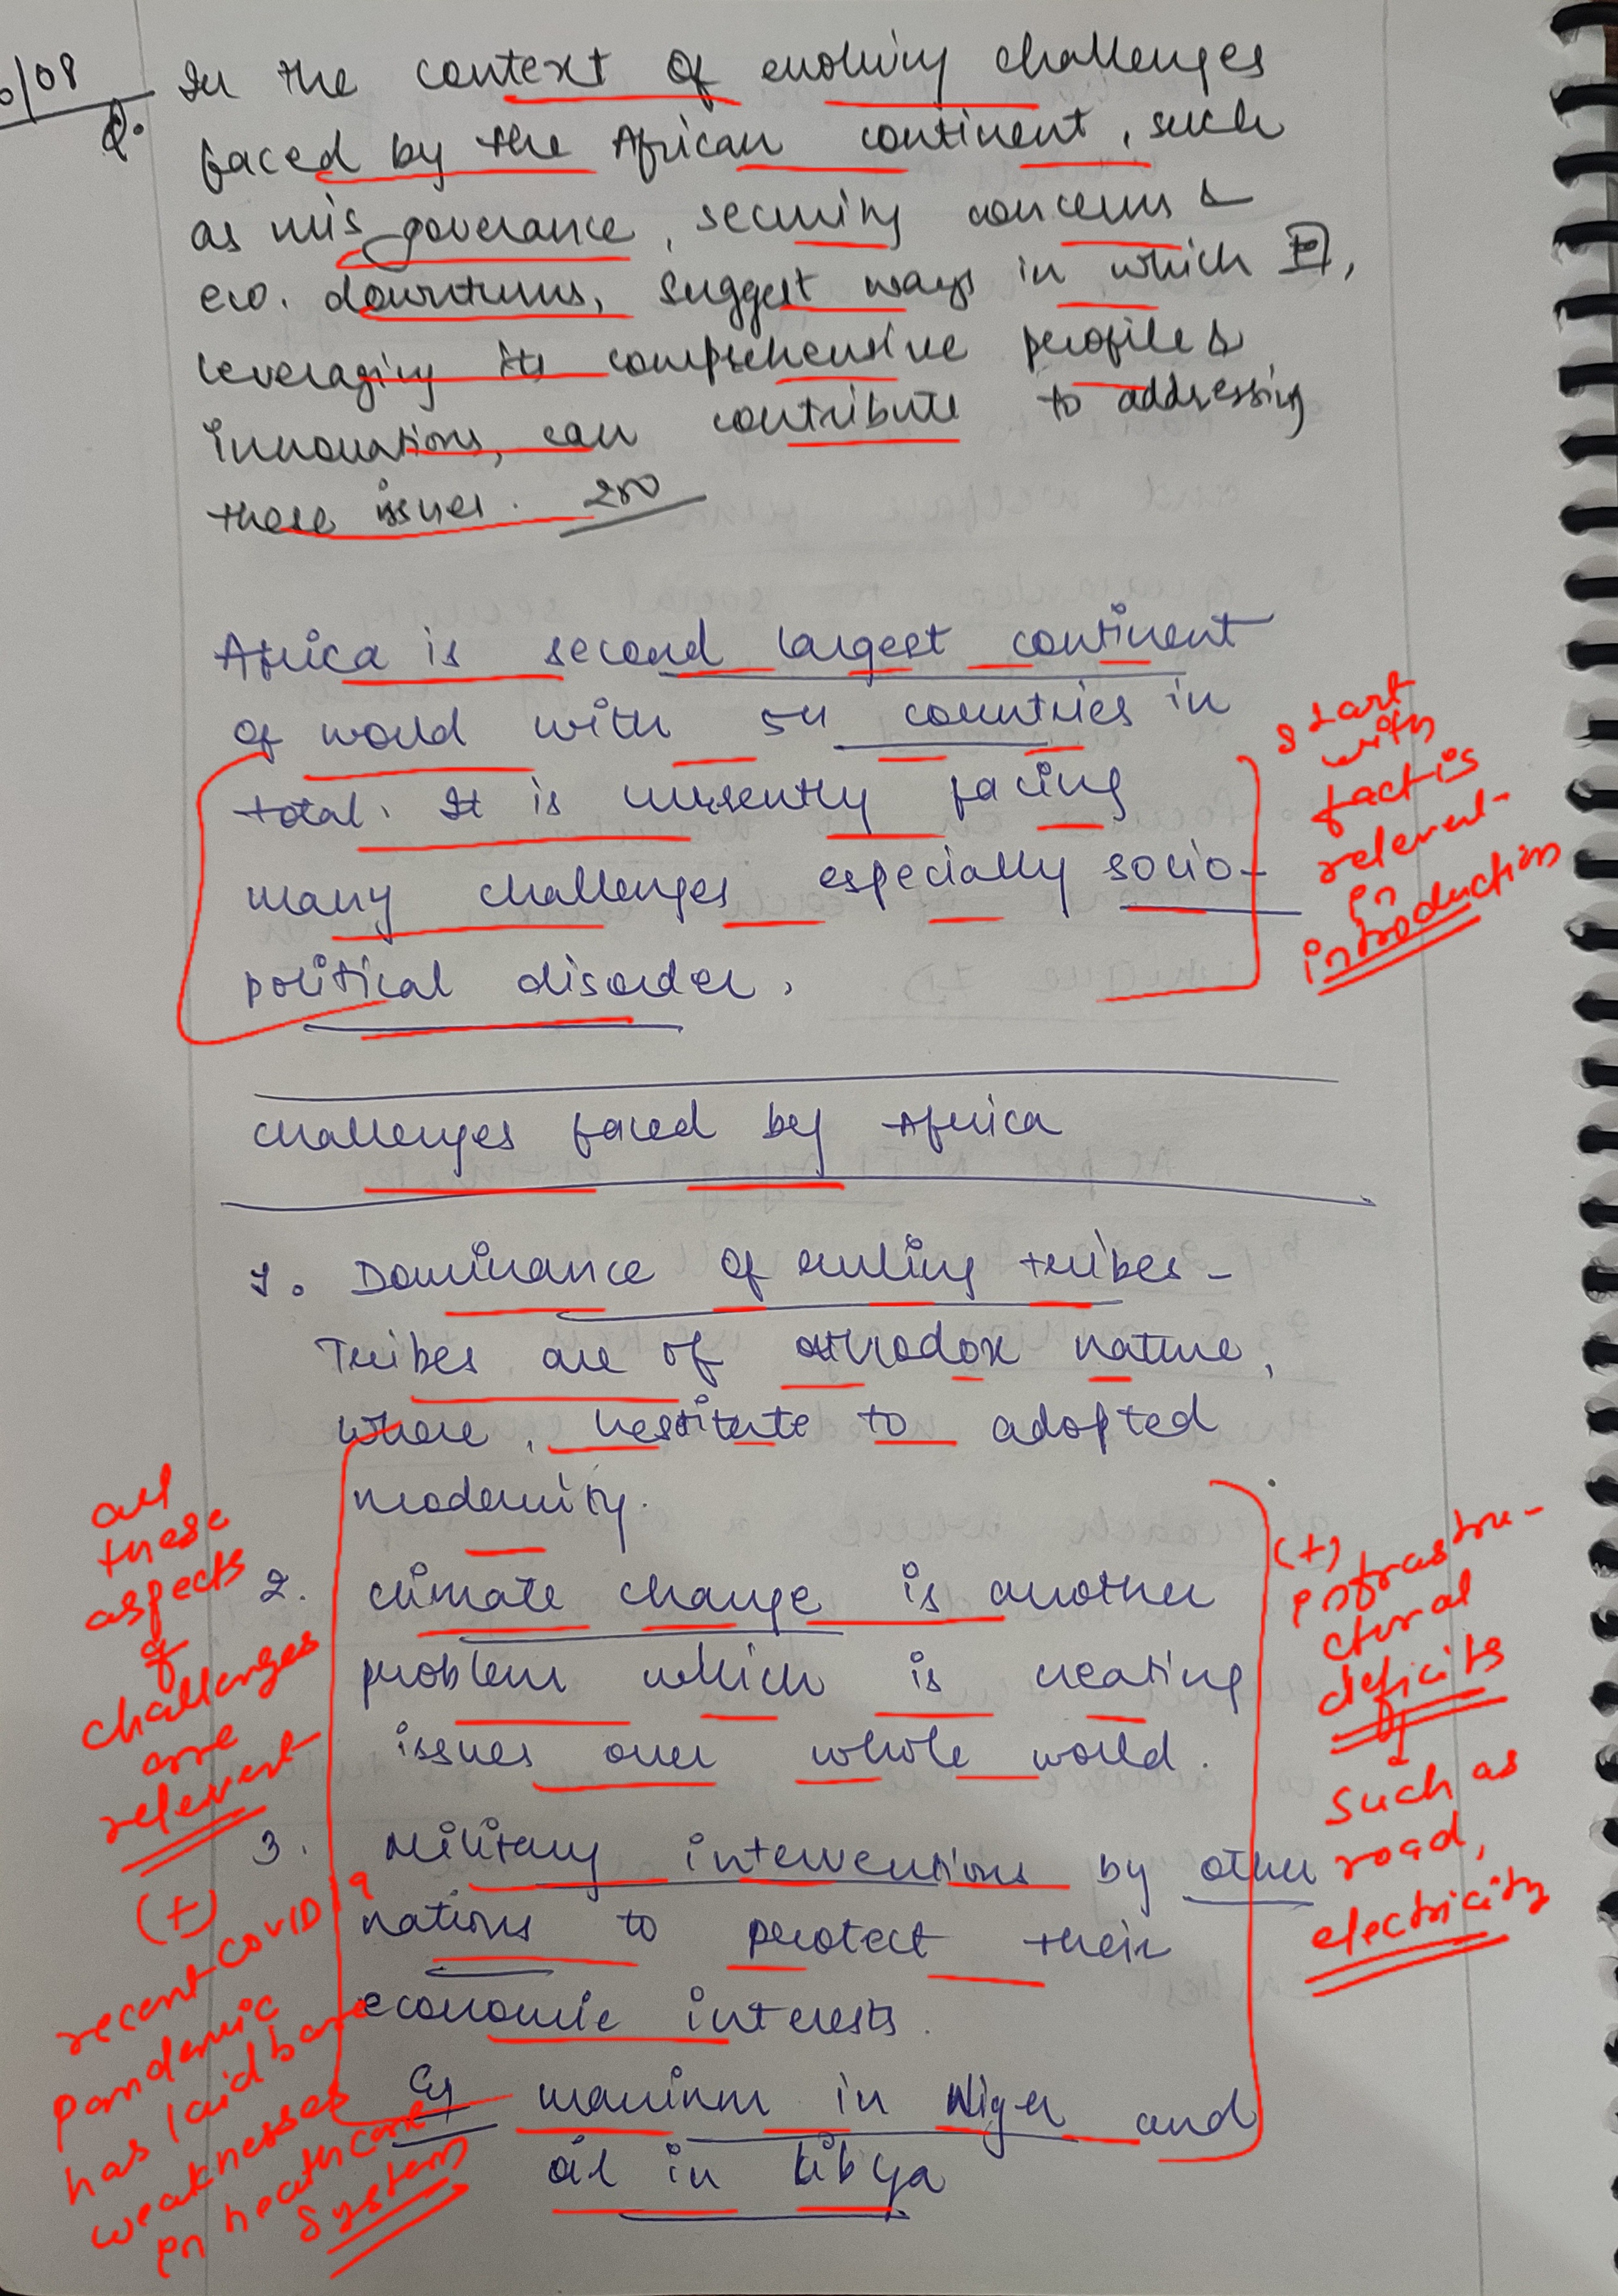 0/08
Q. In the context of evolving challenges
faced by the African continent, such
as mis governance, security concerns &
eco. downturns, suggest ways in which
leveraging its comprehensive profile &
innovations, can contribute to addressing
these issues. 250
Africa is second largest continent
of world with 54 countries in
total. It is currently facing
many challenges especially socio-
political disorder.
start
with
fact is
relevent-
in
introduction
challenges faced by Africa
1. Dominance of ruling tribes -
Tribes are of othrodox nature,
where, hestitate to adopted
modernity.
2. climate change is another
problem which is creating
issues over whole world.
3. Military interventions by other
nations to protect their
economic interests.
Eg in Niger and
oil in Libya
all
these
aspects
of
challenges
are
relevent
(+)
recent COVID 19
pandemic
has laid bare
weaknesses
in heathcare
system
(+)
infrastru-
ctural
deficits
such as
road,
electricity